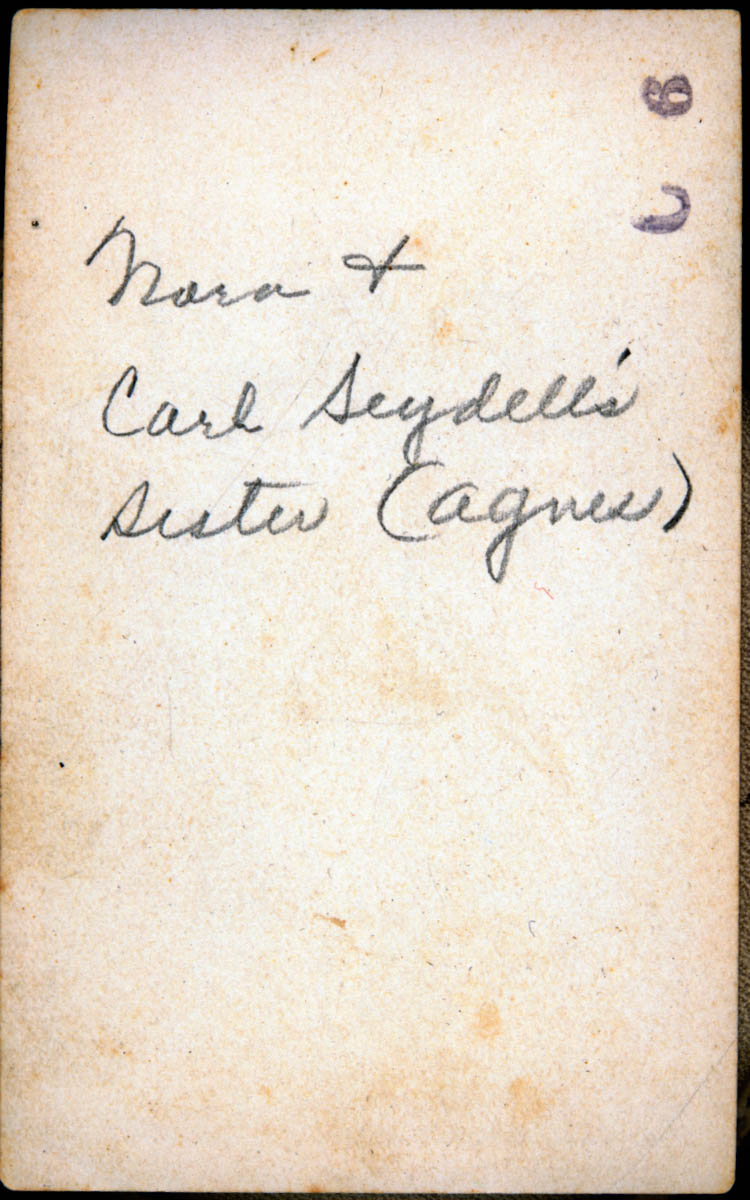 Nora +
Carl Seydell's
Sister (Agnes)